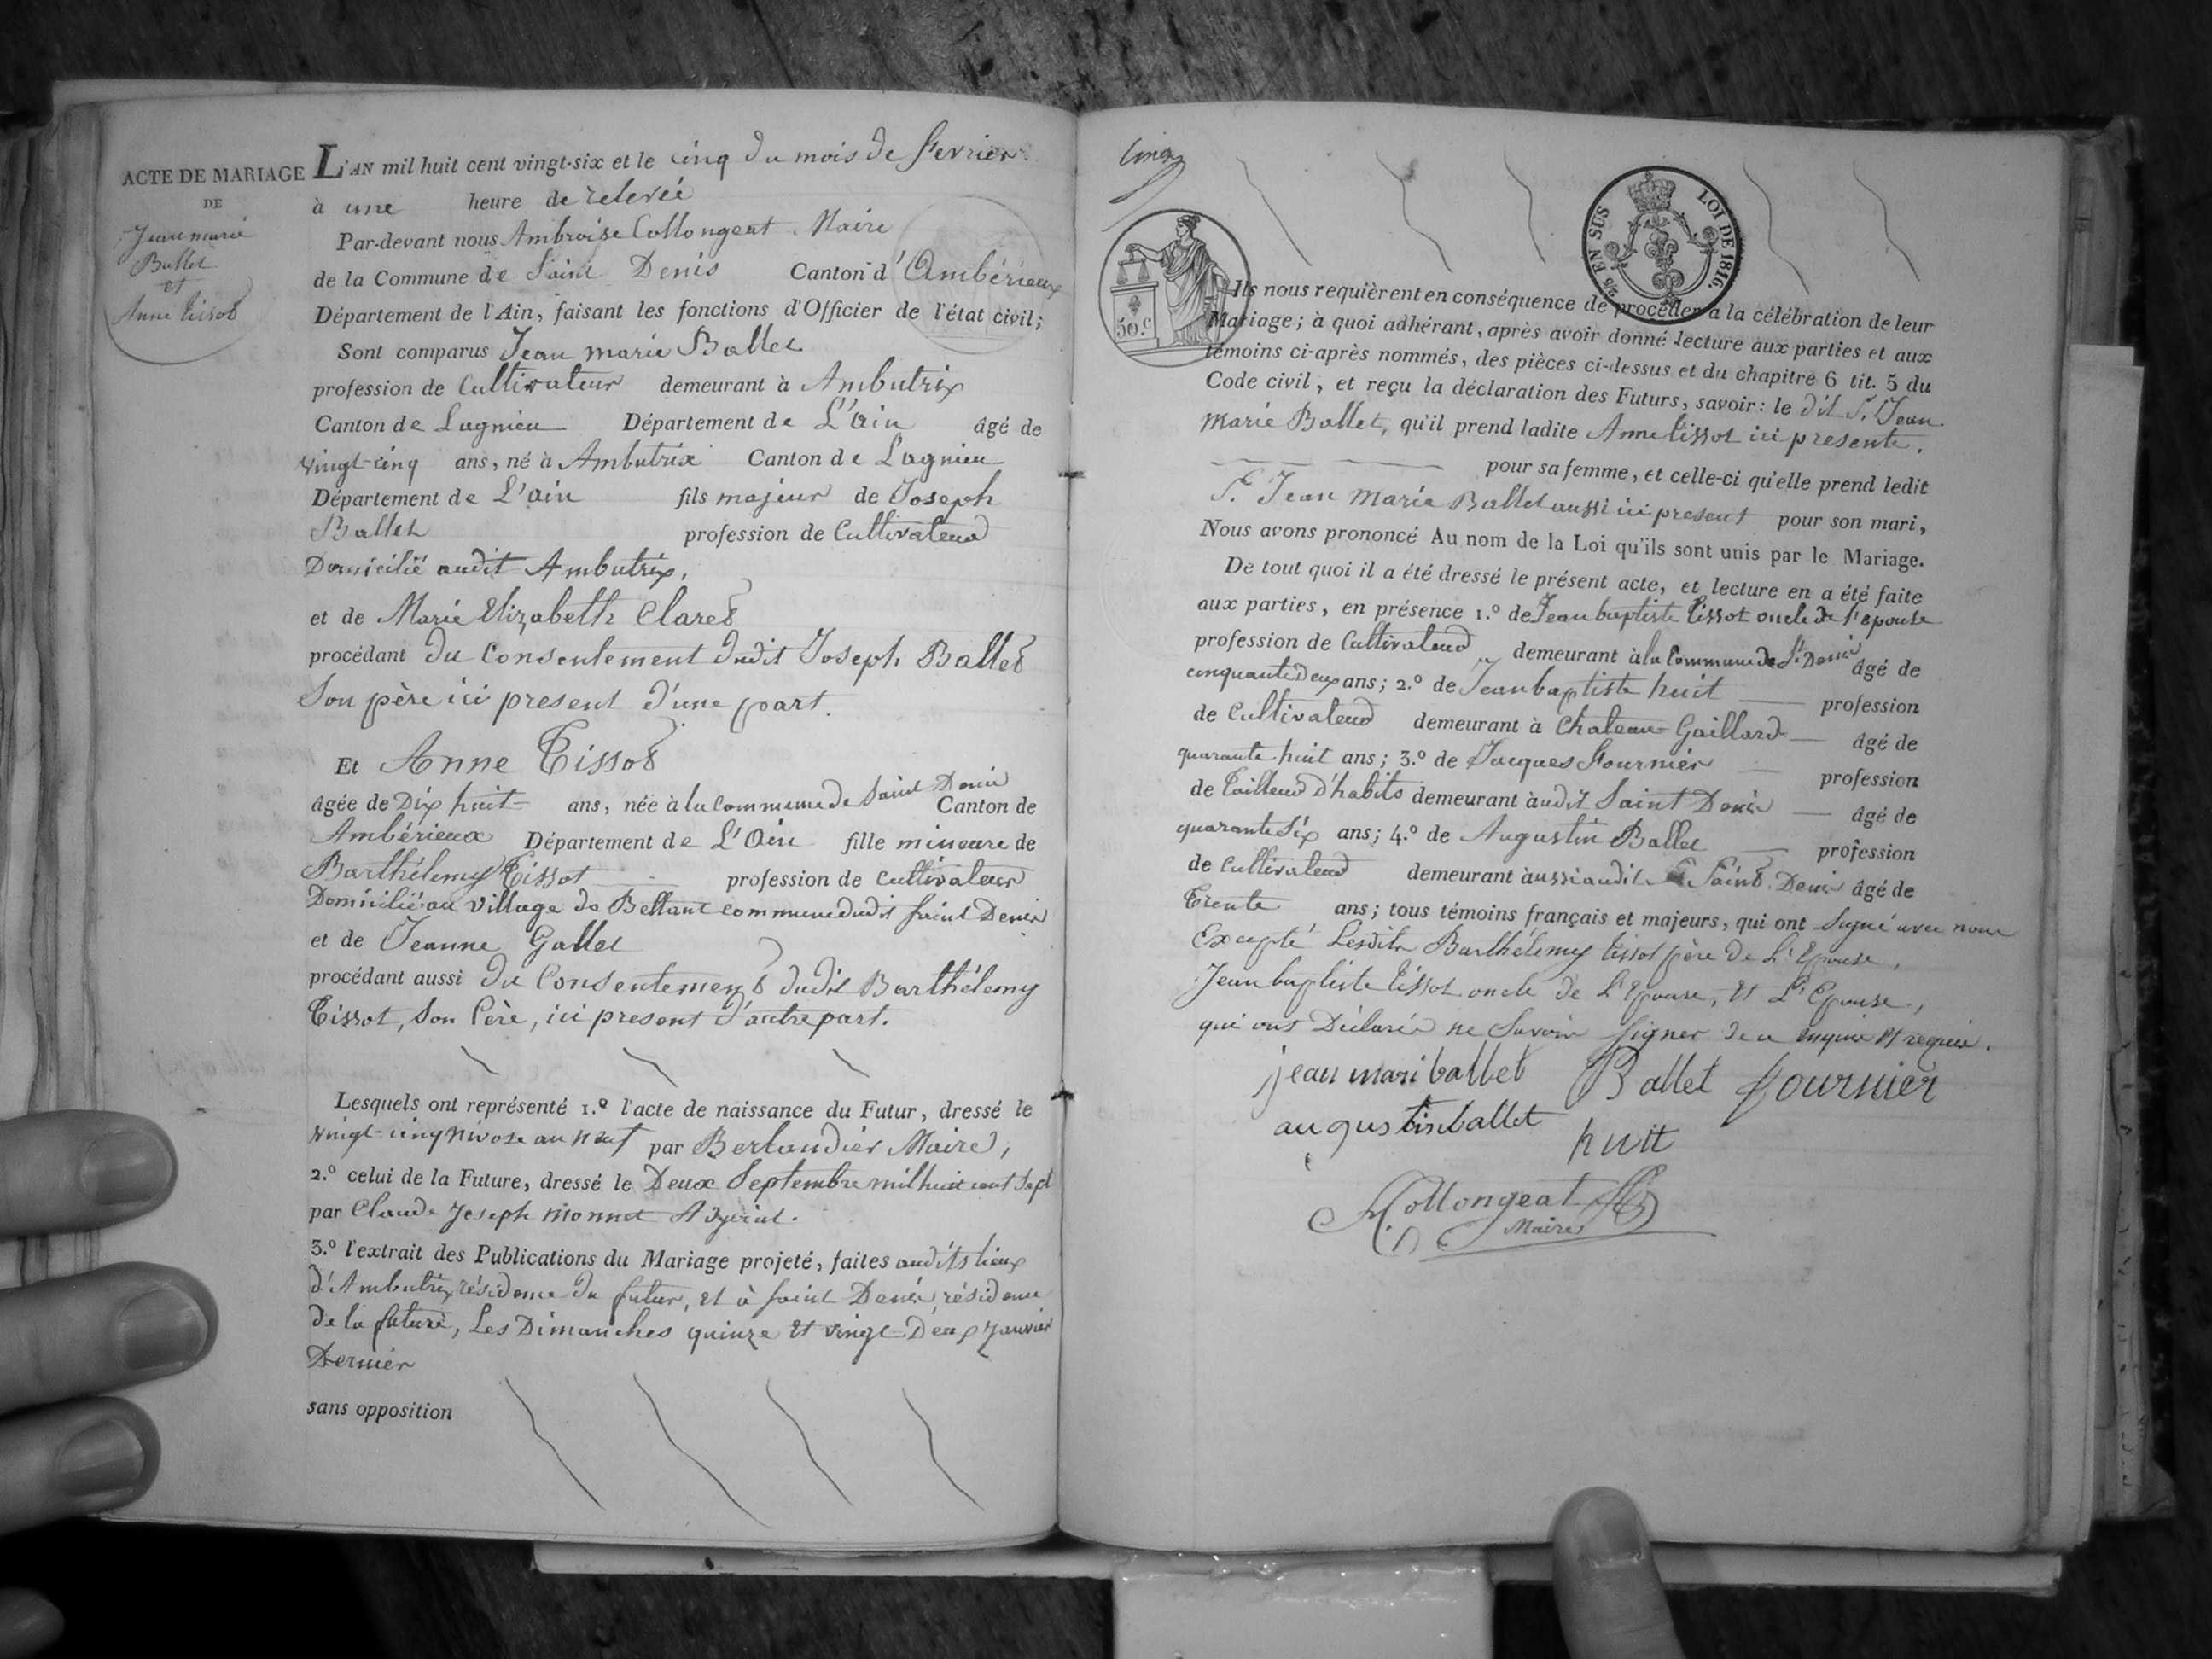 ACTE DE MARIAGE
DE
Jean marie
Ballet
et
Anne tissot
L'AN mil huit cent vingt-six et le cinq du mois de fevrier
à une heure de relevée
Par-devant nous Ambroise Collongeat Maire
de la Commune de Saint Denis Canton d'Ambérieux
Département de l'Ain, faisant les fonctions d'Officier de l'état civil;
Sont comparus Jean marie Ballet
profession de Cultivateur demeurant à Ambutrix
Canton de Lagnieu Département de L'ain âgé de
vingt-cinq ans, né à Ambutrix Canton de Lagnieu
Département de L'ain fils majeur de Joseph
Ballet profession de Cultivateur
Domicilié audit Ambutrix,
et de Marie Elizabeth Claret
procédant du Consentement dudit Joseph Ballet
Son père ici present d'une part.
Et Anne Tissot
âgée de Dix huit ans, née à la commune de Saint Denis Canton de
Ambérieux Département de L'Ain fille mineure de
Barthélemy Tissot profession de cultivateur
Domicilié au village de Bettant commune dudit Saint Denis
et de Jeanne Gallet
procédant aussi du Consentement dudit Barthélemy
Tissot, Son Père, ici present d'autre part.
Lesquels ont représenté 1.º l'acte de naissance du Futur, dressé le
vingt-cinq Nivose an neuf par Berlandier Maire,
2.º celui de la Future, dressé le Deux Septembre mil huit cent Sept
par Claude Joseph Monnet Adjoint.
3.º l'extrait des Publications du Mariage projeté, faites audits lieux
d'Ambutrix résidence du futur, et à Saint Denis, résidence
de la future, Les Dimanches quinze et vingt-Deux Janvier
Dernier
sans opposition
cinq
25 EN SUS LOI DE 1816.
50.c
Ils nous requièrent en conséquence de procéder à la célébration de leur
Mariage; à quoi adhérant, après avoir donné lecture aux parties et aux
témoins ci-après nommés, des pièces ci-dessus et du chapitre 6 tit. 5 du
Code civil, et reçu la déclaration des Futurs, savoir: le dit S. Jean
Marie Ballet, qu'il prend ladite Anne tissot ici presente,
pour sa femme, et celle-ci qu'elle prend ledit
S. Jean Marie Ballet aussi ici present pour son mari,
Nous avons prononcé Au nom de la Loi qu'ils sont unis par le Mariage.
De tout quoi il a été dressé le présent acte, et lecture en a été faite
aux parties, en présence 1.º de Jean baptiste tissot oncle de l'epouse
profession de Cultivateur demeurant à la Commune de St Denis âgé de
cinquante deux ans; 2.º de Jean baptiste huit profession
de Cultivateur demeurant à Chateau Gaillard âgé de
quarante huit ans; 3.º de Jacques Fournier profession
de Tailleur d'habits demeurant audit Saint Denis âgé de
quarante Six ans; 4.º de Augustin Ballet profession
de cultivateur demeurant aussi audit Saint Denis âgé de
Trente ans; tous témoins français et majeurs, qui ont Signé avec nous
Excepté Lesdits Barthélemy tissot père de L'Epouse,
Jean baptiste tissot oncle de L'Epouse, et L'Epouse,
qui ont Déclarés ne Savoir signer de ce enquis et requis.
jean mari ballet Ballet fournier
augustin ballet huit
Collongeat
Maire